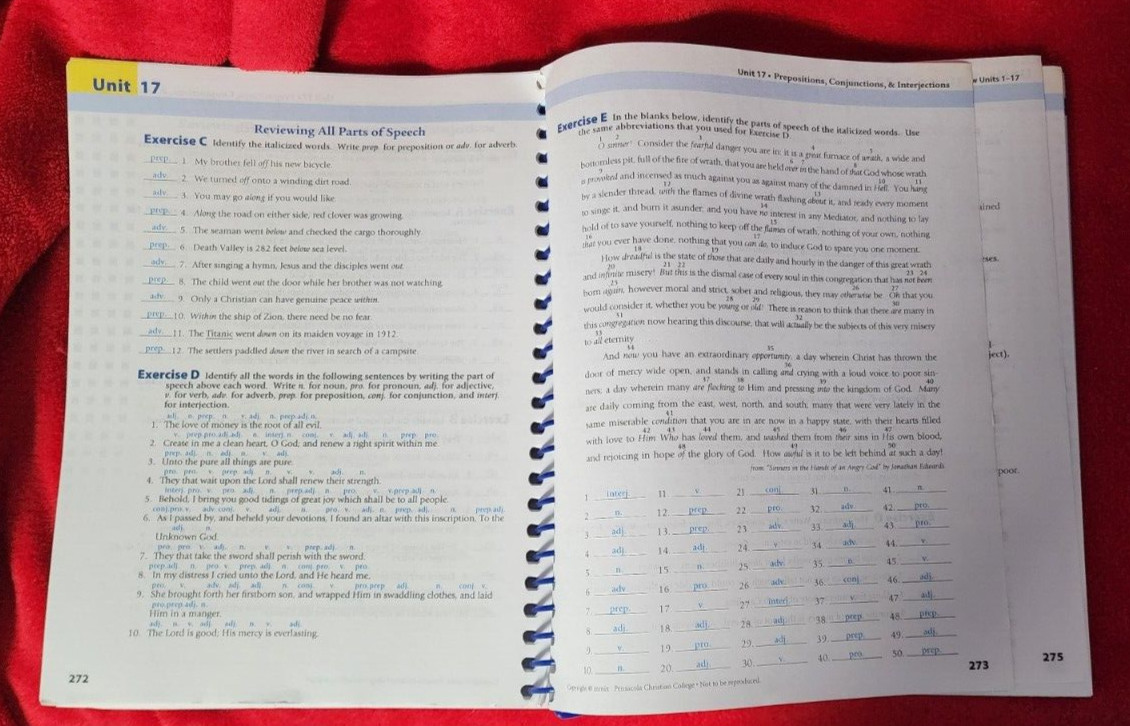 Unit 17
Reviewing All Parts of Speech
Exercise C Identify the italicized words. Write prep. for preposition or adv. for adverb.
prep. 1. My brother fell off his new bicycle.
adv. 2. We turned off onto a winding dirt road.
adv. 3. You may go along if you would like.
prep. 4. Along the road on either side, red clover was growing.
adv. 5. The seaman went below and checked the cargo thoroughly.
prep. 6. Death Valley is 282 feet below sea level.
adv. 7. After singing a hymn, Jesus and the disciples went out.
prep. 8. The child went out the door while her brother was not watching.
adv. 9. Only a Christian can have genuine peace within.
prep. 10. Within the ship of Zion, there need be no fear.
adv. 11. The Titanic went down on its maiden voyage in 1912.
prep. 12. The settlers paddled down the river in search of a campsite.
Exercise D Identify all the words in the following sentences by writing the part of
speech above each word. Write n. for noun, pro. for pronoun, adj. for adjective,
v. for verb, adv. for adverb, prep. for preposition, conj. for conjunction, and interj.
for interjection.
adj. n. prep. n. v. adj. n. prep. adj. n.
1. The love of money is the root of all evil.
v. prep. pro. adj. adj. n. interj. n. conj. v. adj. adj. n. prep. pro.
2. Create in me a clean heart, O God; and renew a right spirit within me.
prep. adj. n. adj. n. v. adj.
3. Unto the pure all things are pure.
pro. pro. v. prep. adj. n. v. v. adj. n.
4. They that wait upon the Lord shall renew their strength.
interj. pro. v. pro. adj. n. prep. adj. n. pro. v. v. prep. adj. n.
5. Behold, I bring you good tidings of great joy which shall be to all people.
conj. pro. v. adv. conj. v. adj. n. pro. v. adj. n. prep. adj. n. prep. adj.
6. As I passed by, and beheld your devotions, I found an altar with this inscription, To the
adj. n.
Unknown God.
pro. pro. v. adj. n. v. v. prep. adj. n.
7. They that take the sword shall perish with the sword.
prep. adj. n. pro. v. prep. adj. n. conj. pro. v. pro.
8. In my distress I cried unto the Lord, and He heard me.
pro. v. adv. adj. adj. n. conj. v. pro. prep. adj. n. conj. v.
9. She brought forth her firstborn son, and wrapped Him in swaddling clothes, and laid
pro. prep. adj. n.
Him in a manger.
adj. n. v. adj. adj. n. v. adj.
10. The Lord is good; His mercy is everlasting.
272
Unit 17 • Prepositions, Conjunctions, & Interjections
Exercise E In the blanks below, identify the parts of speech of the italicized words. Use
the same abbreviations that you used for Exercise D.
1 2 3 4
O sinner! Consider the fearful danger you are in: it is a great furnace of wrath, a wide and
bottomless pit, full of the fire of wrath, that you are held over in the hand of that God whose wrath
is provoked and incensed as much against you as against many of the damned in Hell. You hang
by a slender thread, with the flames of divine wrath flashing about it, and ready every moment
to singe it, and burn it asunder; and you have no interest in any Mediator, and nothing to lay
hold of to save yourself, nothing to keep off the flames of wrath, nothing of your own, nothing
that you ever have done, nothing that you can do, to induce God to spare you one moment.
How dreadful is the state of those that are daily and hourly in the danger of this great wrath
and infinite misery! But this is the dismal case of every soul in this congregation that has not been
born again, however moral and strict, sober and religious, they may otherwise be. Oh that you
would consider it, whether you be young or old! There is reason to think that there are many in
this congregation now hearing this discourse, that will actually be the subjects of this very misery
to all eternity.
And now you have an extraordinary opportunity, a day wherein Christ has thrown the
door of mercy wide open, and stands in calling and crying with a loud voice to poor sin-
ners; a day wherein many are flocking to Him and pressing into the kingdom of God. Many
are daily coming from the east, west, north, and south; many that were very lately in the
same miserable condition that you are in are now in a happy state, with their hearts filled
with love to Him Who has loved them, and washed them from their sins in His own blood,
and rejoicing in hope of the glory of God. How awful is it to be left behind at such a day!
from "Sinners in the Hands of an Angry God" by Jonathan Edwards
1. interj. 11. v. 21. conj. 31. n. 41. n.
2. n. 12. prep. 22. pro. 32. adv. 42. pro.
3. adj. 13. prep. 23. adv. 33. adj. 43. pro.
4. adj. 14. adj. 24. v. 34. adv. 44. v.
5. n. 15. n. 25. adv. 35. n. 45. v.
6. adv. 16. pro. 26. adv. 36. conj. 46. adj.
7. prep. 17. v. 27. interj. 37. v. 47. adj.
8. adj. 18. adj. 28. adj. 38. prep. 48. prep.
9. v. 19. pro. 29. adj. 39. prep. 49. adj.
10. n. 20. adj. 30. v. 40. pro. 50. prep.
Pensacola Christian College • Not to be reproduced.
273
Units 1–17
poor.
275